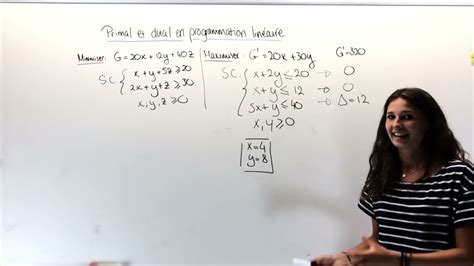 Primal et dual en programmation linéaire
Minimiser: G=20x+12y+40z
S.C. { x+y+5z ≥ 20
2x+y+z ≥ 30
x,y,z ≥ 0
Maximiser: G'=20x+30y G'=320
S.C. { x+2y ≤ 20 → 0
x+y ≤ 12 → 0
5x+y ≤ 40 → Δ=12
x,y ≥ 0
x=4
y=8